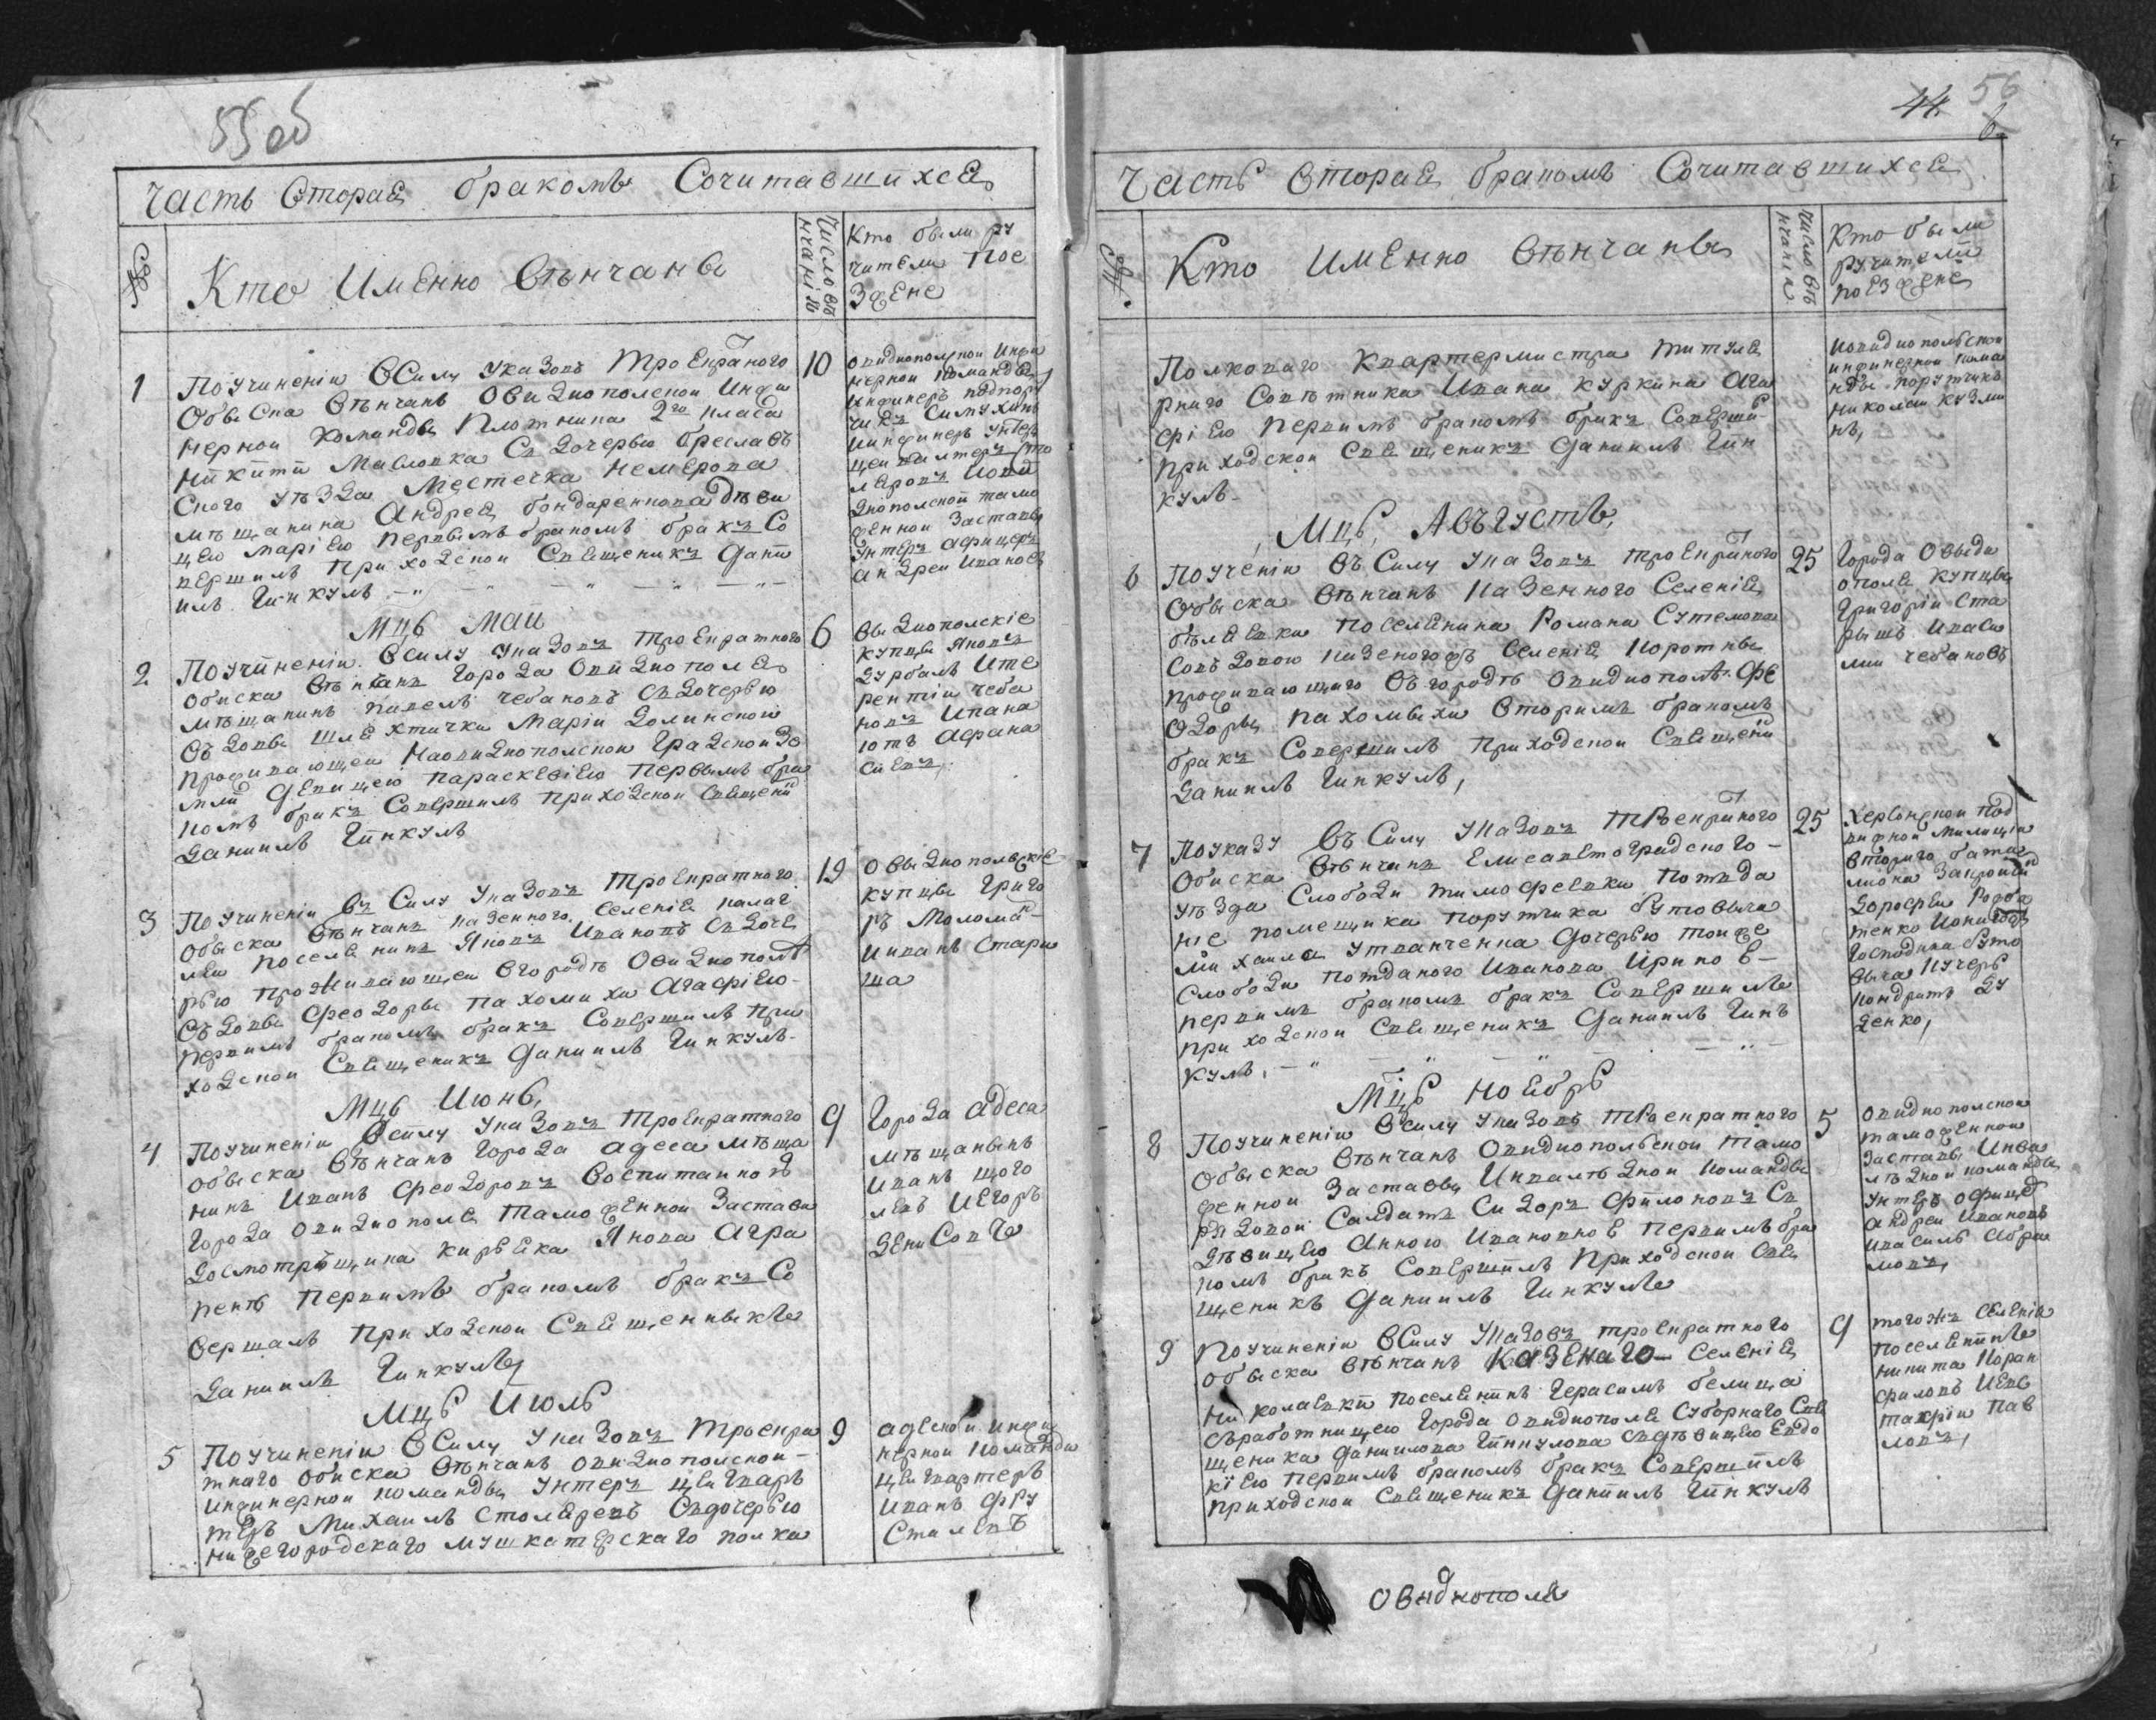 55 об
Часть Вторая бракомъ Сочитавшихся
№
Кто Именно Вѣнчаны
Число вѣнчанія
Кто были ру
чители Пое
зжене
1
По учиненіи Всилу указовъ Троекратного
Обыска Вѣнчанъ Овидиополской Инжи
нерной Команды Плотника 2го класа
Никити Маслювка Съ Дочерью Бреславъ
Ского уѣзда Местечка Немерова
мѣщанина Андрея бондаренкова Дѣви
цею Маріею первымъ бракомъ бракъ Со
вершилъ приходской Священикъ Дани
илъ Гинкулъ
10
овидиополской Инжи
нерной Команды
Инжинеръ подпору
чикъ
Иинжинеръ Унтеръ
цейвахтеръ Сто
ляровъ Иови
диополской тамо
женной Заставы
Унтеръ афицеръ
андреи Ивановъ
Мць Маи
2
По учиненіи Всилу указовъ Троекратного
обиска Вѣнчанъ Города Овидиополя
мѣщанинъ павелъ чебановъ Съ Дочерью
Въдовы Шляхтички Маріи Долинской
Проживающеи Наовидиополской Градской Зе
мли Девицею Параскевіею Первымъ бра
комъ бракъ Совершилъ приходской Священи
Даниилъ Гинкулъ
6
Овидиополскіе
купцы Яковъ
Цурбалъ Ите
рентіи чеба
новъ Ивана
ютъ Афана
сиевъ
3
По учиненіи Въ Силу Указовъ Троекратного
обыска Вѣнчанъ Казенного Селенія палаг
леи поселянинъ Яковъ Ивановъ Съ Доче
рью проживающеи Вгородѣ Овидиополѣ
Въдовы Феодоры Пахомихи Агафіею
первимъ бракомъ бракъ Совершилъ при
ходской Священикъ Даниилъ Гинкулъ
19
Овидиополскіе
купцы Григо
ръ Молома
Ииванъ Стари
ша
Мць Июнь,
4
По учиненіи Всилу указовъ Троекратного
обыска Вѣнчанъ Города адеса мѣща
нинъ Иванъ Феодоровъ Воспитанной
Города Овидиополя Таможенной Заставы
Досмотрщика Кирѣяка Янова Агра
пенъ первимъ бракомъ бракъ Со
вершалъ приходской Священныкъ
Даниилъ Гинкулъ
9
Города адеса
мѣщанынъ
Иванъ Щого
левъ ИЕгоръ
Денисовъ
Мць Июль
5
По учиненіи Всилу указовъ Троекра
тнаго обиска Вѣнчанъ Овидиополской
инжинерной команды Унтеръ цейвахъ
теръ Михаилъ Столяревъ Съдочерью
Нижегородскаго мушкатерскаго полка
9
адеской инжи
нерной команды
цейвахтеръ
Иванъ Фру
Сталевъ
44. 56
6
Часть Вторая бракомъ Сочитавшихся
№
Кто Именно Вѣнчаны
Число вѣнчанія
Кто были
ручители
поезжене
Полковаго Квартермистра титуля
рного Советника Ивана Куркина Ага
фіею первимъ бракомъ бракъ Соверши
приходской Священикъ Даниилъ Гин
кулъ
Иовидиополской
инжинерной кома
нды порутчикъ
Николаи Кузми
нъ,
Мць, Августъ,
6
По учченіи Въ Силу указовъ Троекратного
Обыска Вѣнчанъ Казенного Селенія
бѣляевки Поселянина Романа Сутемова
Совъдовою Казеногожъ Селенія Коротны
проживающаго Въгородѣ Овидиополѣ Фе
одоры пахомыхи Вторимъ бракомъ
бракъ Совершилъ Приходской Священи
Даниилъ Гинкулъ,
25
Города Овыди
ополя купцы
Григоріи Ста
рышъ Иваси
лии чебановъ
7
По указу Въ Силу указовъ Троекратного
обиска Вѣнчанъ Елисаветоградского
уѣзда Слободи тимофеевки Поτда
ніе помещика порутчика бутовыча
Михаила Утванченка Дочерью тоиже
Слободи Потданого Иванова Ириною
первимъ бракомъ бракъ Совершилъ
приходской Священикъ Даниилъ Гинъ
кулъ,
25
Херсонской Под
вижной Милиціи
второго батал
лиона
Дорофеи
тенко
Господина буто
выча Кучеръ
Кондратъ Ду
денко,
Мць Ноябрь
8
По учиненіи Всилу указовъ Троекратного
обыска Вѣнчанъ Овидиополской Тамо
женной Заставы Инвалѣдной команды
рядовой Салдатъ Сидоръ Филоновъ Съ
Дѣвицею Анною Ивановное первимъ бра
комъ бракъ Совершилъ Приходской Свя
щеникъ Даниилъ Гинкулъ
5
Овидиополской
таможенной
Заставы Инва
лѣдной команды
Унтеръ офицер
Андреи Ивановъ
Ивасилъ Абра
мовъ,
9
По учиненіи Всилу Указовъ троекратного
обыска вѣнчанъ Казенаго Селенія
Николаевки поселянинъ Герасимъ белица
Съработницею Города Овидиополя Суборнаго Свя
щеника Даниилова Гинкулова Съдѣвицею Евдо
кіею первимъ бракомъ бракъ Совершилъ
приходской Священикъ Даниилъ Гинкулъ
9
тогожъ Селенія
поселянинъ
Никита Коран
филовъ ИЕвс
тахріи Пав
ловъ,
Овидиополя